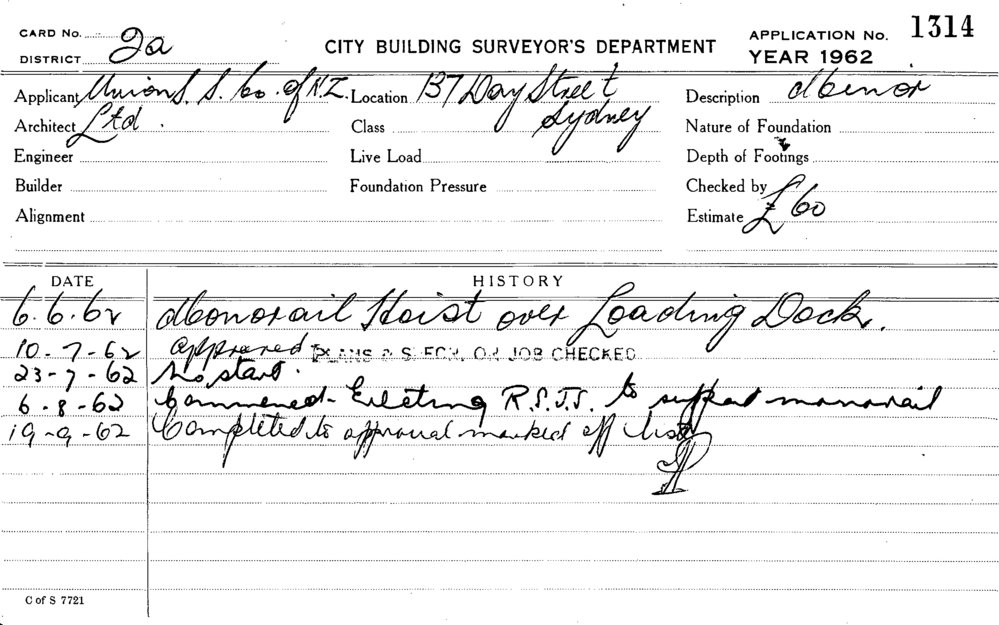 CARD No. 2a
DISTRICT
CITY BUILDING SURVEYOR'S DEPARTMENT
APPLICATION No. 1314
YEAR 1962
Applicant Union S. S. Co. of N.Z. Location 137 Day Street Description Minor
Architect Ltd. Class Sydney Nature of Foundation
Engineer Live Load Depth of Footings
Builder Foundation Pressure Checked by
Alignment Estimate £60
DATE HISTORY
6.6.62 Monorail Hoist over Loading Dock.
10-7-62 approved PLANS & SPECN. ON JOB CHECKED
23-7-62 No start.
6-8-62 Commenced - Erecting R.S.J.S. to support monorail
19-9-62 Completed to approval marked off list
C of S 7721